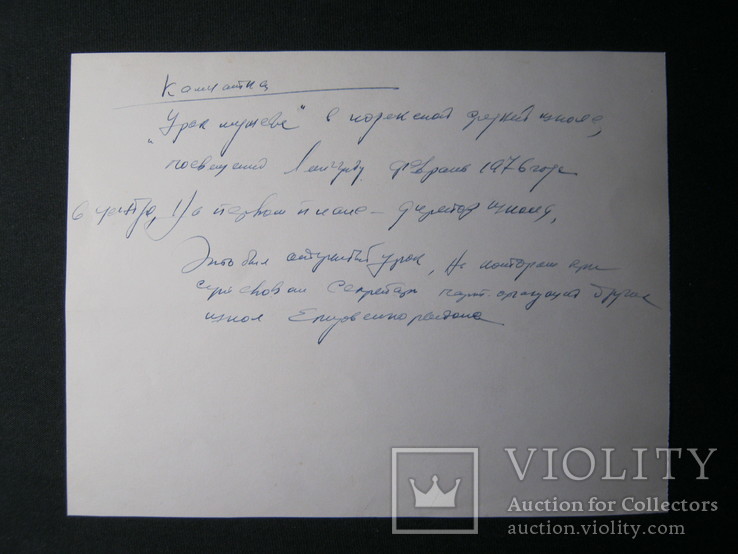 Камчатка
"Урок мужества" в корякской средней школе,
посвящено Ленину. Февраль 1976 года
В центре, на первом плане – директор школы,
Это был открытый урок, на котором при
сутствовали секретари парт. организаций других
школ Елизовского района
VIOLITY
Auction for Collectors
auction.violity.com